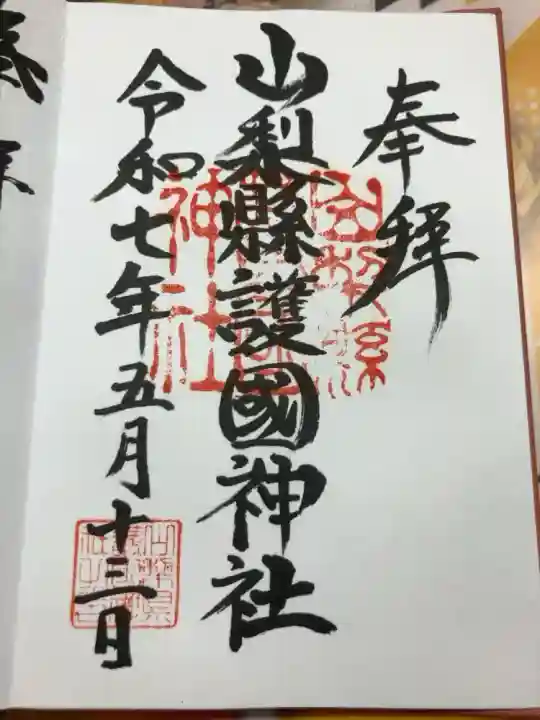 奉拜
山梨縣護國神社
令和七年五月十三日